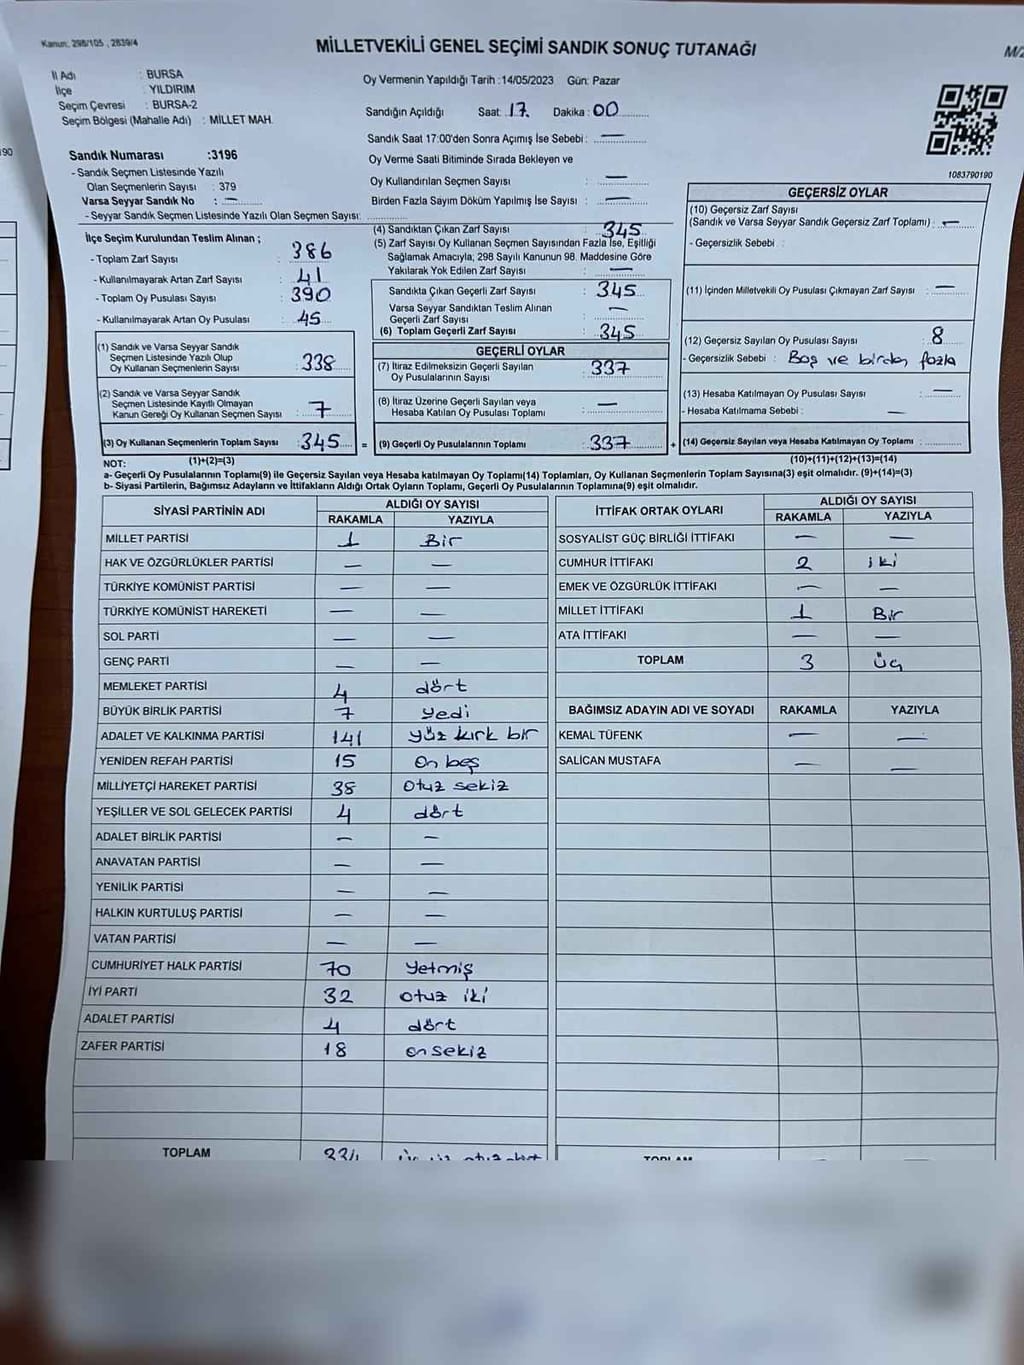 Kanun: 298/105 , 2839/4
MİLLETVEKİLİ GENEL SEÇİMİ SANDIK SONUÇ TUTANAĞI
M/2
İl Adı : BURSA
İlçe : YILDIRIM
Seçim Çevresi : BURSA-2
Seçim Bölgesi (Mahalle Adı) : MİLLET MAH.
Oy Vermenin Yapıldığı Tarih :14/05/2023 Gün: Pazar
Sandığın Açıldığı Saat: 17 Dakika : 00
Sandık Saat 17:00'den Sonra Açımış İse Sebebi : —
Oy Verme Saati Bitiminde Sırada Bekleyen ve
Oy Kullandırılan Seçmen Sayısı : —
Birden Fazla Sayım Döküm Yapılmış İse Sayısı : —
1083790190
Sandık Numarası :3196
- Sandık Seçmen Listesinde Yazılı
Olan Seçmenlerin Sayısı : 379
Varsa Seyyar Sandık No : —
- Seyyar Sandık Seçmen Listesinde Yazılı Olan Seçmen Sayısı:
İlçe Seçim Kurulundan Teslim Alınan ;
- Toplam Zarf Sayısı : 386
- Kullanılmayarak Artan Zarf Sayısı : 41
- Toplam Oy Pusulası Sayısı : 390
- Kullanılmayarak Artan Oy Pusulası : 45
(1) Sandık ve Varsa Seyyar Sandık
Seçmen Listesinde Yazılı Olup
Oy Kullanan Seçmenlerin Sayısı : 338
(2) Sandık ve Varsa Seyyar Sandık
Seçmen Listesinde Kayıtlı Olmayan
Kanun Gereği Oy Kullanan Seçmen Sayısı : 7
(3) Oy Kullanan Seçmenlerin Toplam Sayısı : 345 =
(1)+(2)=(3)
(4) Sandıktan Çıkan Zarf Sayısı : 345
(5) Zarf Sayısı Oy Kullanan Seçmen Sayısından Fazla İse, Eşitliği
Sağlamak Amacıyla; 298 Sayılı Kanunun 98. Maddesine Göre
Yakılarak Yok Edilen Zarf Sayısı : —
Sandıkta Çıkan Geçerli Zarf Sayısı : 345
Varsa Seyyar Sandıktan Teslim Alınan
Geçerli Zarf Sayısı : —
(6) Toplam Geçerli Zarf Sayısı : 345
GEÇERLİ OYLAR
(7) İtiraz Edilmeksizin Geçerli Sayılan
Oy Pusulalarının Sayısı : 337
(8) İtiraz Üzerine Geçerli Sayılan veya
Hesaba Katılan Oy Pusulası Toplamı : —
(9) Geçerli Oy Pusulalarının Toplamı : 337 +
GEÇERSİZ OYLAR
(10) Geçersiz Zarf Sayısı
(Sandık ve Varsa Seyyar Sandık Geçersiz Zarf Toplamı) : —
- Geçersizlik Sebebi :
(11) İçinden Milletvekili Oy Pusulası Çıkmayan Zarf Sayısı : —
(12) Geçersiz Sayılan Oy Pusulası Sayısı : 8
- Geçersizlik Sebebi : Boş ve birden fazla
(13) Hesaba Katılmayan Oy Pusulası Sayısı : —
- Hesaba Katılmama Sebebi : —
(14) Geçersiz Sayılan veya Hesaba Katılmayan Oy Toplamı :
(10)+(11)+(12)+(13)=(14)
NOT:
a- Geçerli Oy Pusulalarının Toplam(9) ile Geçersiz Sayılan veya Hesaba katılmayan Oy Toplam(14) Toplamları, Oy Kullanan Seçmenlerin Toplam Sayısına(3) eşit olmalıdır. (9)+(14)=(3)
b- Siyasi Partilerin, Bağımsız Adayların ve İttifakların Aldığı Ortak Oyların Toplamı, Geçerli Oy Pusulalarının Toplamına(9) eşit olmalıdır.
SİYASİ PARTİNİN ADI ALDIĞI OY SAYISI
RAKAMLA YAZIYLA
MİLLET PARTİSİ 1 Bir
HAK VE ÖZGÜRLÜKLER PARTİSİ — —
TÜRKİYE KOMÜNİST PARTİSİ — —
TÜRKİYE KOMÜNİST HAREKETİ — —
SOL PARTİ — —
GENÇ PARTİ — —
MEMLEKET PARTİSİ 4 dört
BÜYÜK BİRLİK PARTİSİ 7 yedi
ADALET VE KALKINMA PARTİSİ 141 yüz kırk bir
YENİDEN REFAH PARTİSİ 15 on beş
MİLLİYETÇİ HAREKET PARTİSİ 38 otuz sekiz
YEŞİLLER VE SOL GELECEK PARTİSİ 4 dört
ADALET BİRLİK PARTİSİ — —
ANAVATAN PARTİSİ — —
YENİLİK PARTİSİ — —
HALKIN KURTULUŞ PARTİSİ — —
VATAN PARTİSİ — —
CUMHURİYET HALK PARTİSİ 70 yetmiş
İYİ PARTİ 32 otuz iki
ADALET PARTİSİ 4 dört
ZAFER PARTİSİ 18 onsekiz
TOPLAM 334
İTTİFAK ORTAK OYLARI ALDIĞI OY SAYISI
RAKAMLA YAZIYLA
SOSYALİST GÜÇ BİRLİĞİ İTTİFAKI — —
CUMHUR İTTİFAKI 2 iki
EMEK VE ÖZGÜRLÜK İTTİFAKI — —
MİLLET İTTİFAKI 1 Bir
ATA İTTİFAKI — —
TOPLAM 3 üç
BAĞIMSIZ ADAYIN ADI VE SOYADI RAKAMLA YAZIYLA
KEMAL TÜFENK — —
SALİCAN MUSTAFA — —
TOPLAM